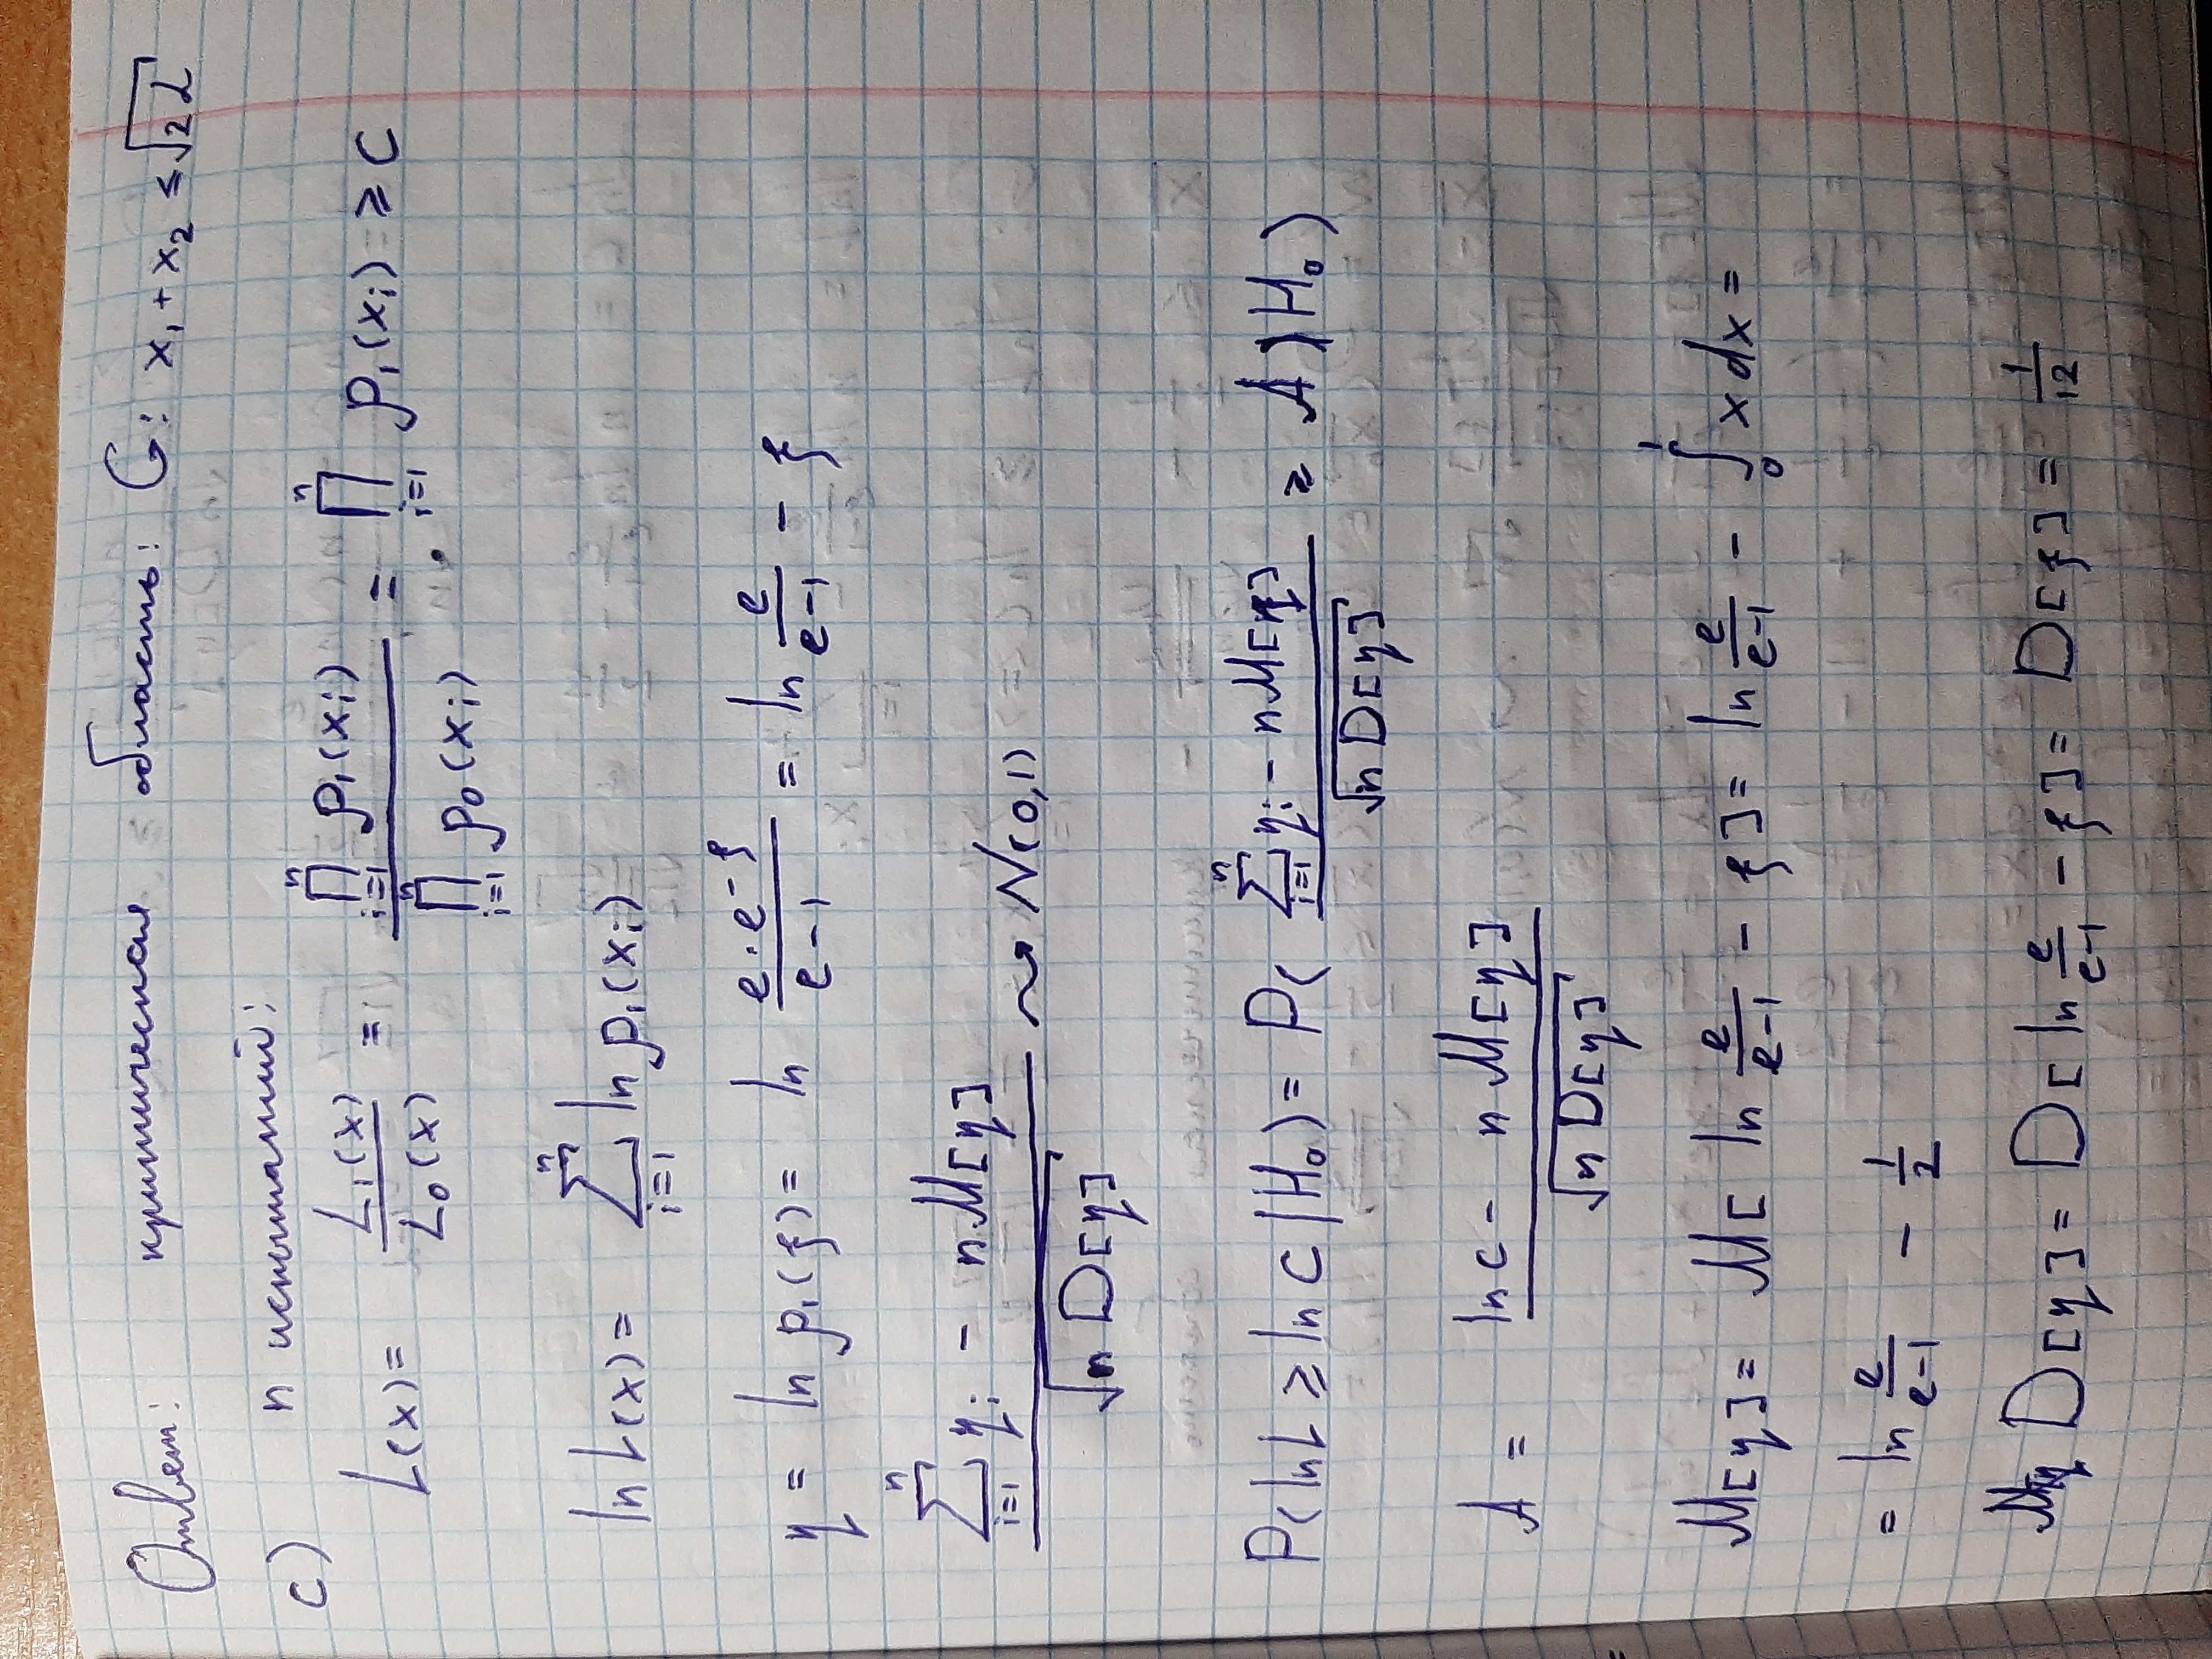 Ответ: критическая область: G: x₁ + x₂ ≤ √(2α)
c) n испытаний:
L(x) = L₁(x) / L₀(x) = ∏_{i=1}^{n} p₁(xᵢ) / ∏_{i=1}^{n} p₀(xᵢ) = ∏_{i=1}^{n} p₁(xᵢ) ≥ C
ln L(x) = ∑_{i=1}^{n} ln p₁(xᵢ)
η = ln p₁(ξ) = ln (e·e^{-ξ})/(e-1) = ln e/(e-1) - ξ
(∑_{i=1}^{n} ηᵢ - nM[η]) / √(n D[η]) ⇝ N(0,1)
P(ln L ≥ ln C | H₀) = P( (∑_{i=1}^{n} ηᵢ - nM[η]) / √(n D[η]) ≥ A | H₀ )
A = (ln C - n M[η]) / √(n D[η])
M[η] = M[ ln e/(e-1) - ξ ] = ln e/(e-1) - ∫₀¹ x dx =
= ln e/(e-1) - 1/2
D[η] = D[ ln e/(e-1) - ξ ] = D[ξ] = 1/12